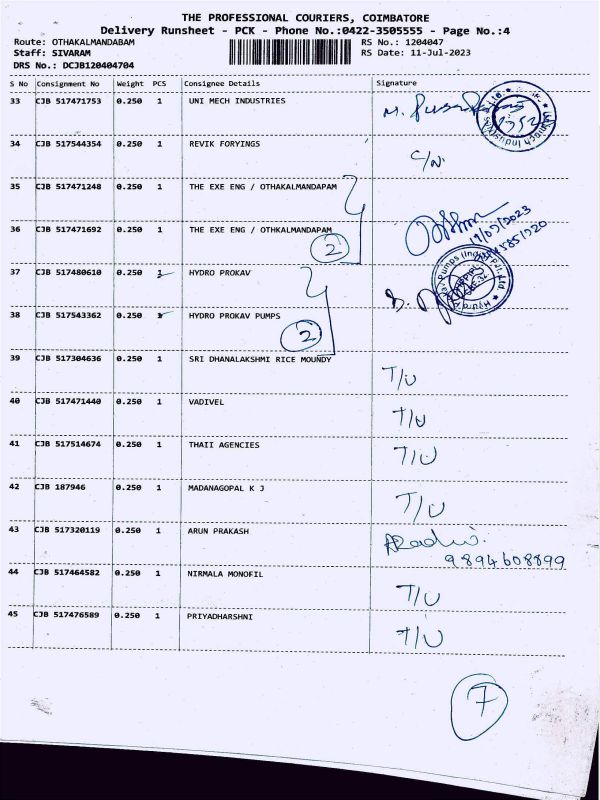 THE PROFESSIONAL COURIERS, COIMBATORE
Delivery Runsheet - PCK - Phone No.:0422-3505555 - Page No.:4
Route: OTHAKALMANDABAM RS No.: 1204047
Staff: SIVARAM RS Date: 11-Jul-2023
DRS No.: DCJB120404704
S No Consignment No Weight PCS Consignee Details Signature
33 CJB 517471753 0.250 1 UNI MECH INDUSTRIES
34 CJB 517544354 0.250 1 REVIK FORYINGS C/N.
35 CJB 517471248 0.250 1 THE EXE ENG / OTHAKALMANDAPAM
36 CJB 517471692 0.250 1 THE EXE ENG / OTHKALMANDAPAM
2
37 CJB 517480610 0.250 1 HYDRO PROKAV
38 CJB 517543362 0.250 HYDRO PROKAV PUMPS
2
39 CJB 517304636 0.250 1 SRI DHANALAKSHMI RICE MOUNDY T/U
40 CJB 517471440 0.250 1 VADIVEL T/U
41 CJB 517514674 0.250 1 THAII AGENCIES T/U
42 CJB 187946 0.250 1 MADANAGOPAL K J T/U
43 CJB 517320119 0.250 1 ARUN PRAKASH
9894608899
44 CJB 517464582 0.250 1 NIRMALA MONOFIL T/U
45 CJB 517476589 0.250 1 PRIYADHARSHNI T/U
7